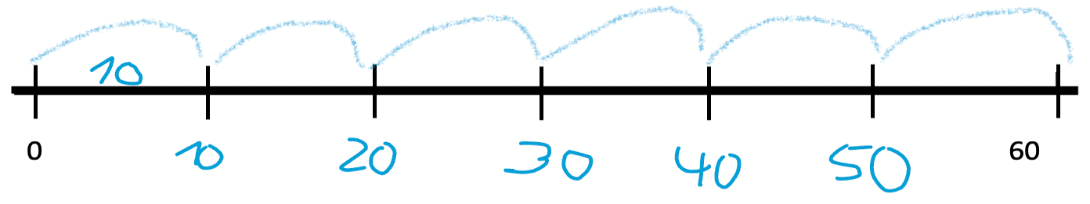 10
0 10 20 30 40 50 60